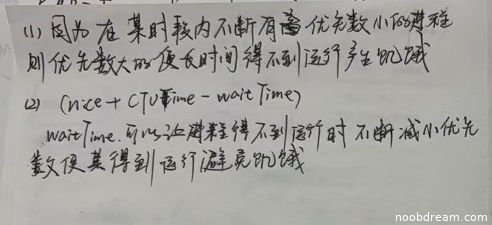 (1) 因为在某时段内不断有优先数小的进程
则优先数大的便长时间得不到运行产生饥饿
(2) (nice + CPUTime - waitTime)
waitTime.可以让进程得不到运行时不断减小优先
数使其得到运行避免饥饿
noobdream.com